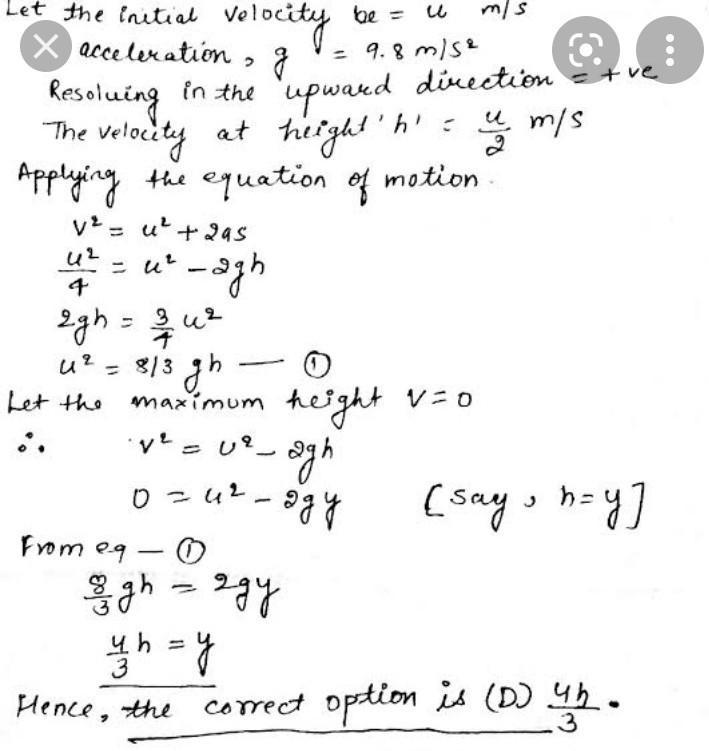 Let the initial velocity be = u m/s
acceleration, g = 9.8 m/s²
Resoluing in the upward direction = +ve
The velocity at height 'h' = u/2 m/s
Applying the equation of motion.
v² = u² + 2as
u²/4 = u² - 2gh
2gh = 3/4 u²
u² = 8/3 gh — ①
Let the maximum height v = 0
∴ v² = u² - 2gh
0 = u² - 2gy [say, h=y]
From eq — ①
8/3 gh = 2gy
4/3 h = y
Hence, the correct option is (D) 4h/3.